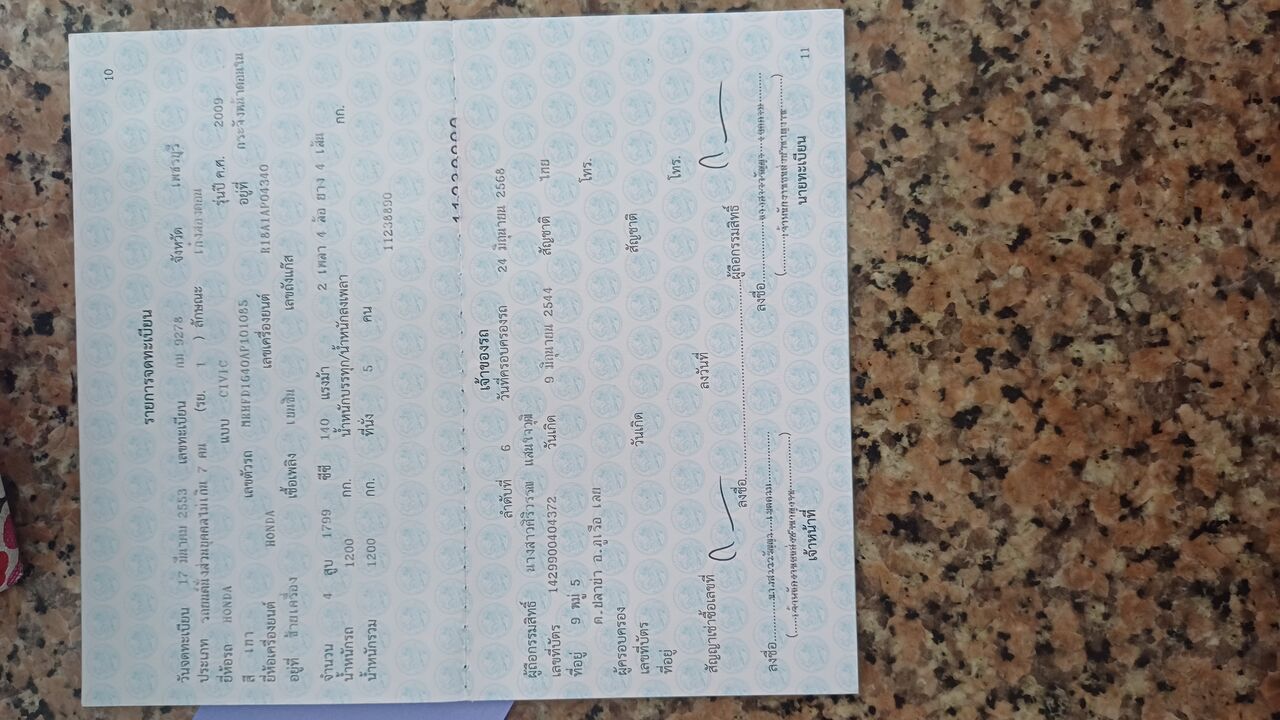 10
รายการจดทะเบียน
วันจดทะเบียน 17 มีนาคม 2553 เลขทะเบียน กม 9278 จังหวัด เพชรบุรี
ประเภท รถยนต์นั่งส่วนบุคคลไม่เกิน 7 คน (รย. 1 ) ลักษณะ เก๋งสองตอน
ยี่ห้อรถ HONDA แบบ CIVIC รุ่นปี ค.ศ. 2009
สี เทา เลขตัวรถ MRHFD1640AP101085 อยู่ที่ กระจังหน้าตอนใน
ยี่ห้อเครื่องยนต์ HONDA เลขเครื่องยนต์ R18A1AP04340
อยู่ที่ ซ้ายเครื่อง เชื้อเพลิง เบนซิน เลขถังแก๊ส
จำนวน 4 สูบ 1799 ซีซี 140 แรงม้า 2 เพลา 4 ล้อ ยาง 4 เส้น
น้ำหนักรถ 1200 กก. น้ำหนักบรรทุก/น้ำหนักลงเพลา กก.
น้ำหนักรวม 1200 กก. ที่นั่ง 5 คน
11238890
เจ้าของรถ
ลำดับที่ 6 วันที่ครอบครองรถ 24 มิถุนายน 2568
ผู้ถือกรรมสิทธิ์ นางสาวศิริวรรณ แสนใจวุฒิ
เลขที่บัตร 1429900404372 วันเกิด 9 มิถุนายน 2544 สัญชาติ ไทย
ที่อยู่ 9 หมู่ 5 โทร.
ต.ปลาบ่า อ.ภูเรือ เลย
ผู้ครอบครอง
เลขที่บัตร วันเกิด สัญชาติ
ที่อยู่ โทร.
สัญญาเช่าซื้อเลขที่ ลงวันที่
ลงชื่อ ผู้ถือกรรมสิทธิ์
ลงชื่อ ลงชื่อ
เจ้าหน้าที่ นายทะเบียน
11